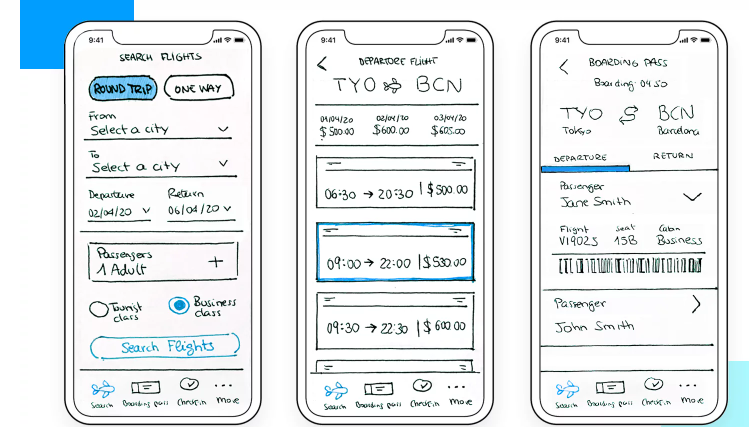 9:41
SEARCH FLIGHTS
ROUND TRIP ONE WAY
From
Select a city
To
Select a city
Departure Return
02/04/20 06/04/20
Passengers
1 Adult +
Tourist class
Business class
Search Flights
Search Boarding pass Check-in More
9:41
DEPARTURE FLIGHT
TYO BCN
01/04/20 02/04/20 03/04/20
$500.00 $600.00 $605.00
06:30 → 20:30 | $500.00
09:00 → 22:00 | $530.00
09:30 → 22:30 | $600.00
Search Boarding pass Check-in More
9:41
BOARDING PASS
Boarding: 04:50
TYO BCN
Tokyo Barcelona
DEPARTURE RETURN
Passenger
Jane Smith
Flight Seat Cabin
VI9025 15B Business
Passenger
John Smith
Search Boarding pass Check-in More